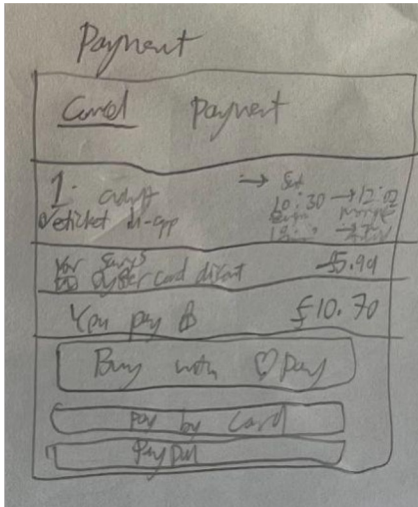 Payment
Cancel Payment
1. adult → Sat
eticket in-app 10:30 → 12:02
Your savings £5.99
Oyster card
You pay £10.70
Buy with Pay
Pay by Card
PayPal